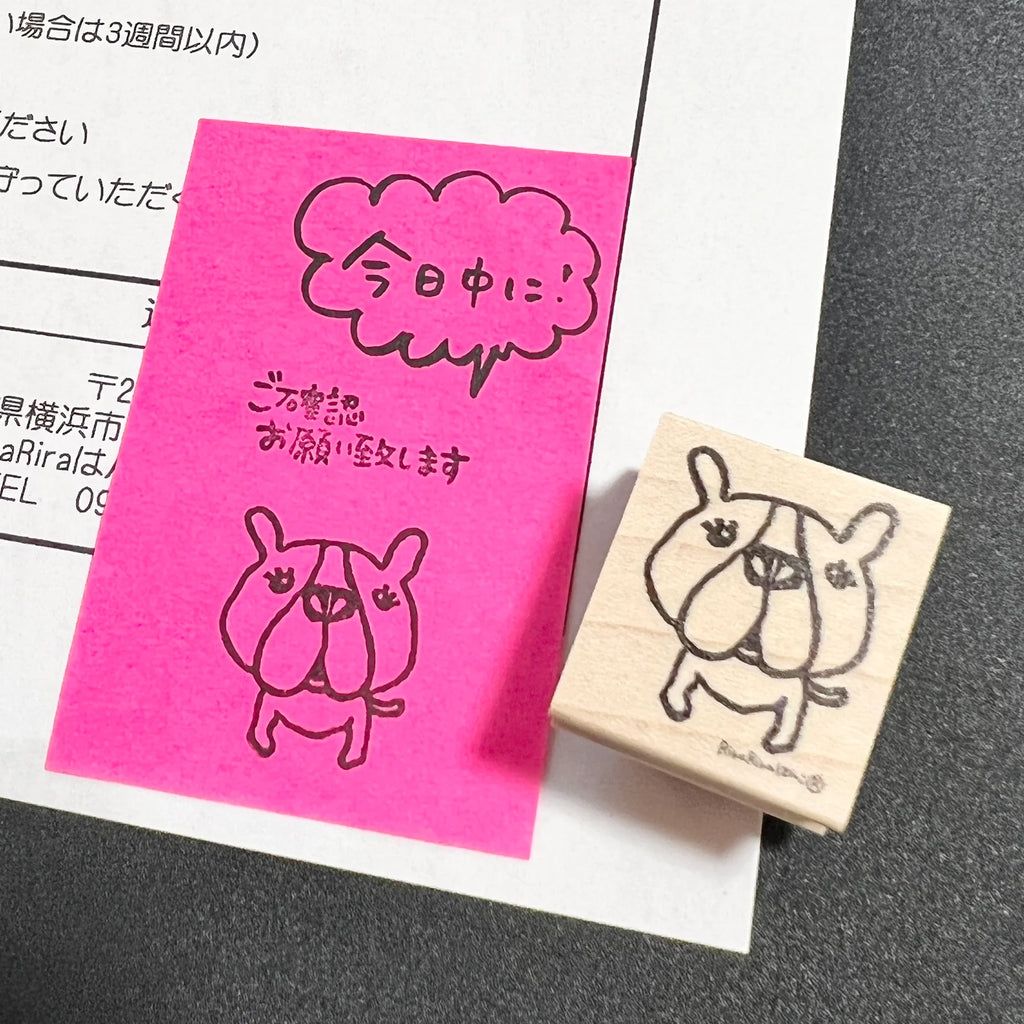 い場合は3週間以内）
ださい
守っていただく
今日中に!
ご確認
お願い致します
〒2
県横浜市
aRiraは
EL 09